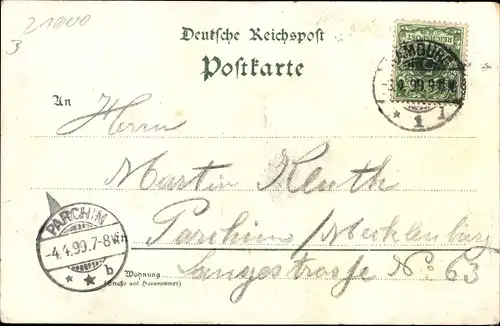 21000
3
Deutsche Reichspost
Postkarte
REICHSPOST
HAMBURG
99
* 1
An
Herrn
Martin
PARCHIM
-4.4.99.7-8V.
* * b
in
Parchim/Mecklenburg
Wohnung
(Straße und Hausnummer)
Langestrasse No. 63